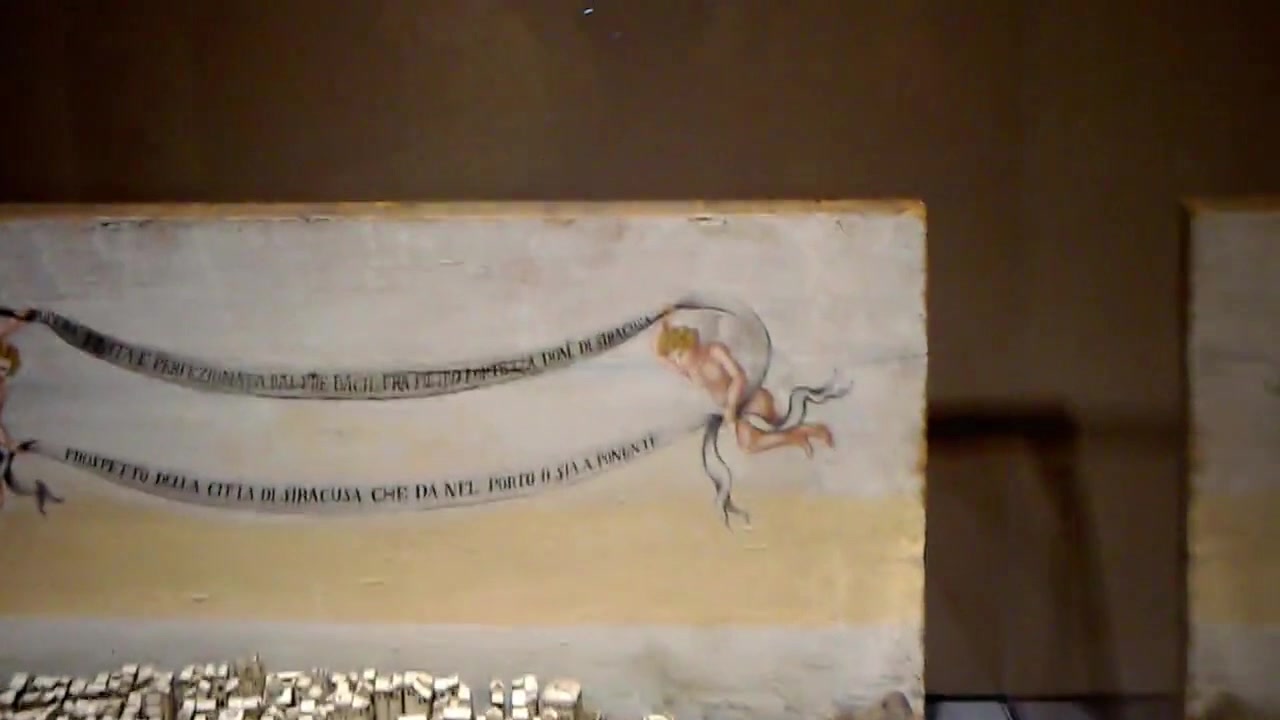 FATTA E PERFEZIONATA DAL PRE BACIL FRA PIETRO FORTEZZA DOM. DI SIRACUSA
PROSPETTO DELLA CITTA DI SIRACUSA CHE DA NEL PORTO O SIA A PONENTE